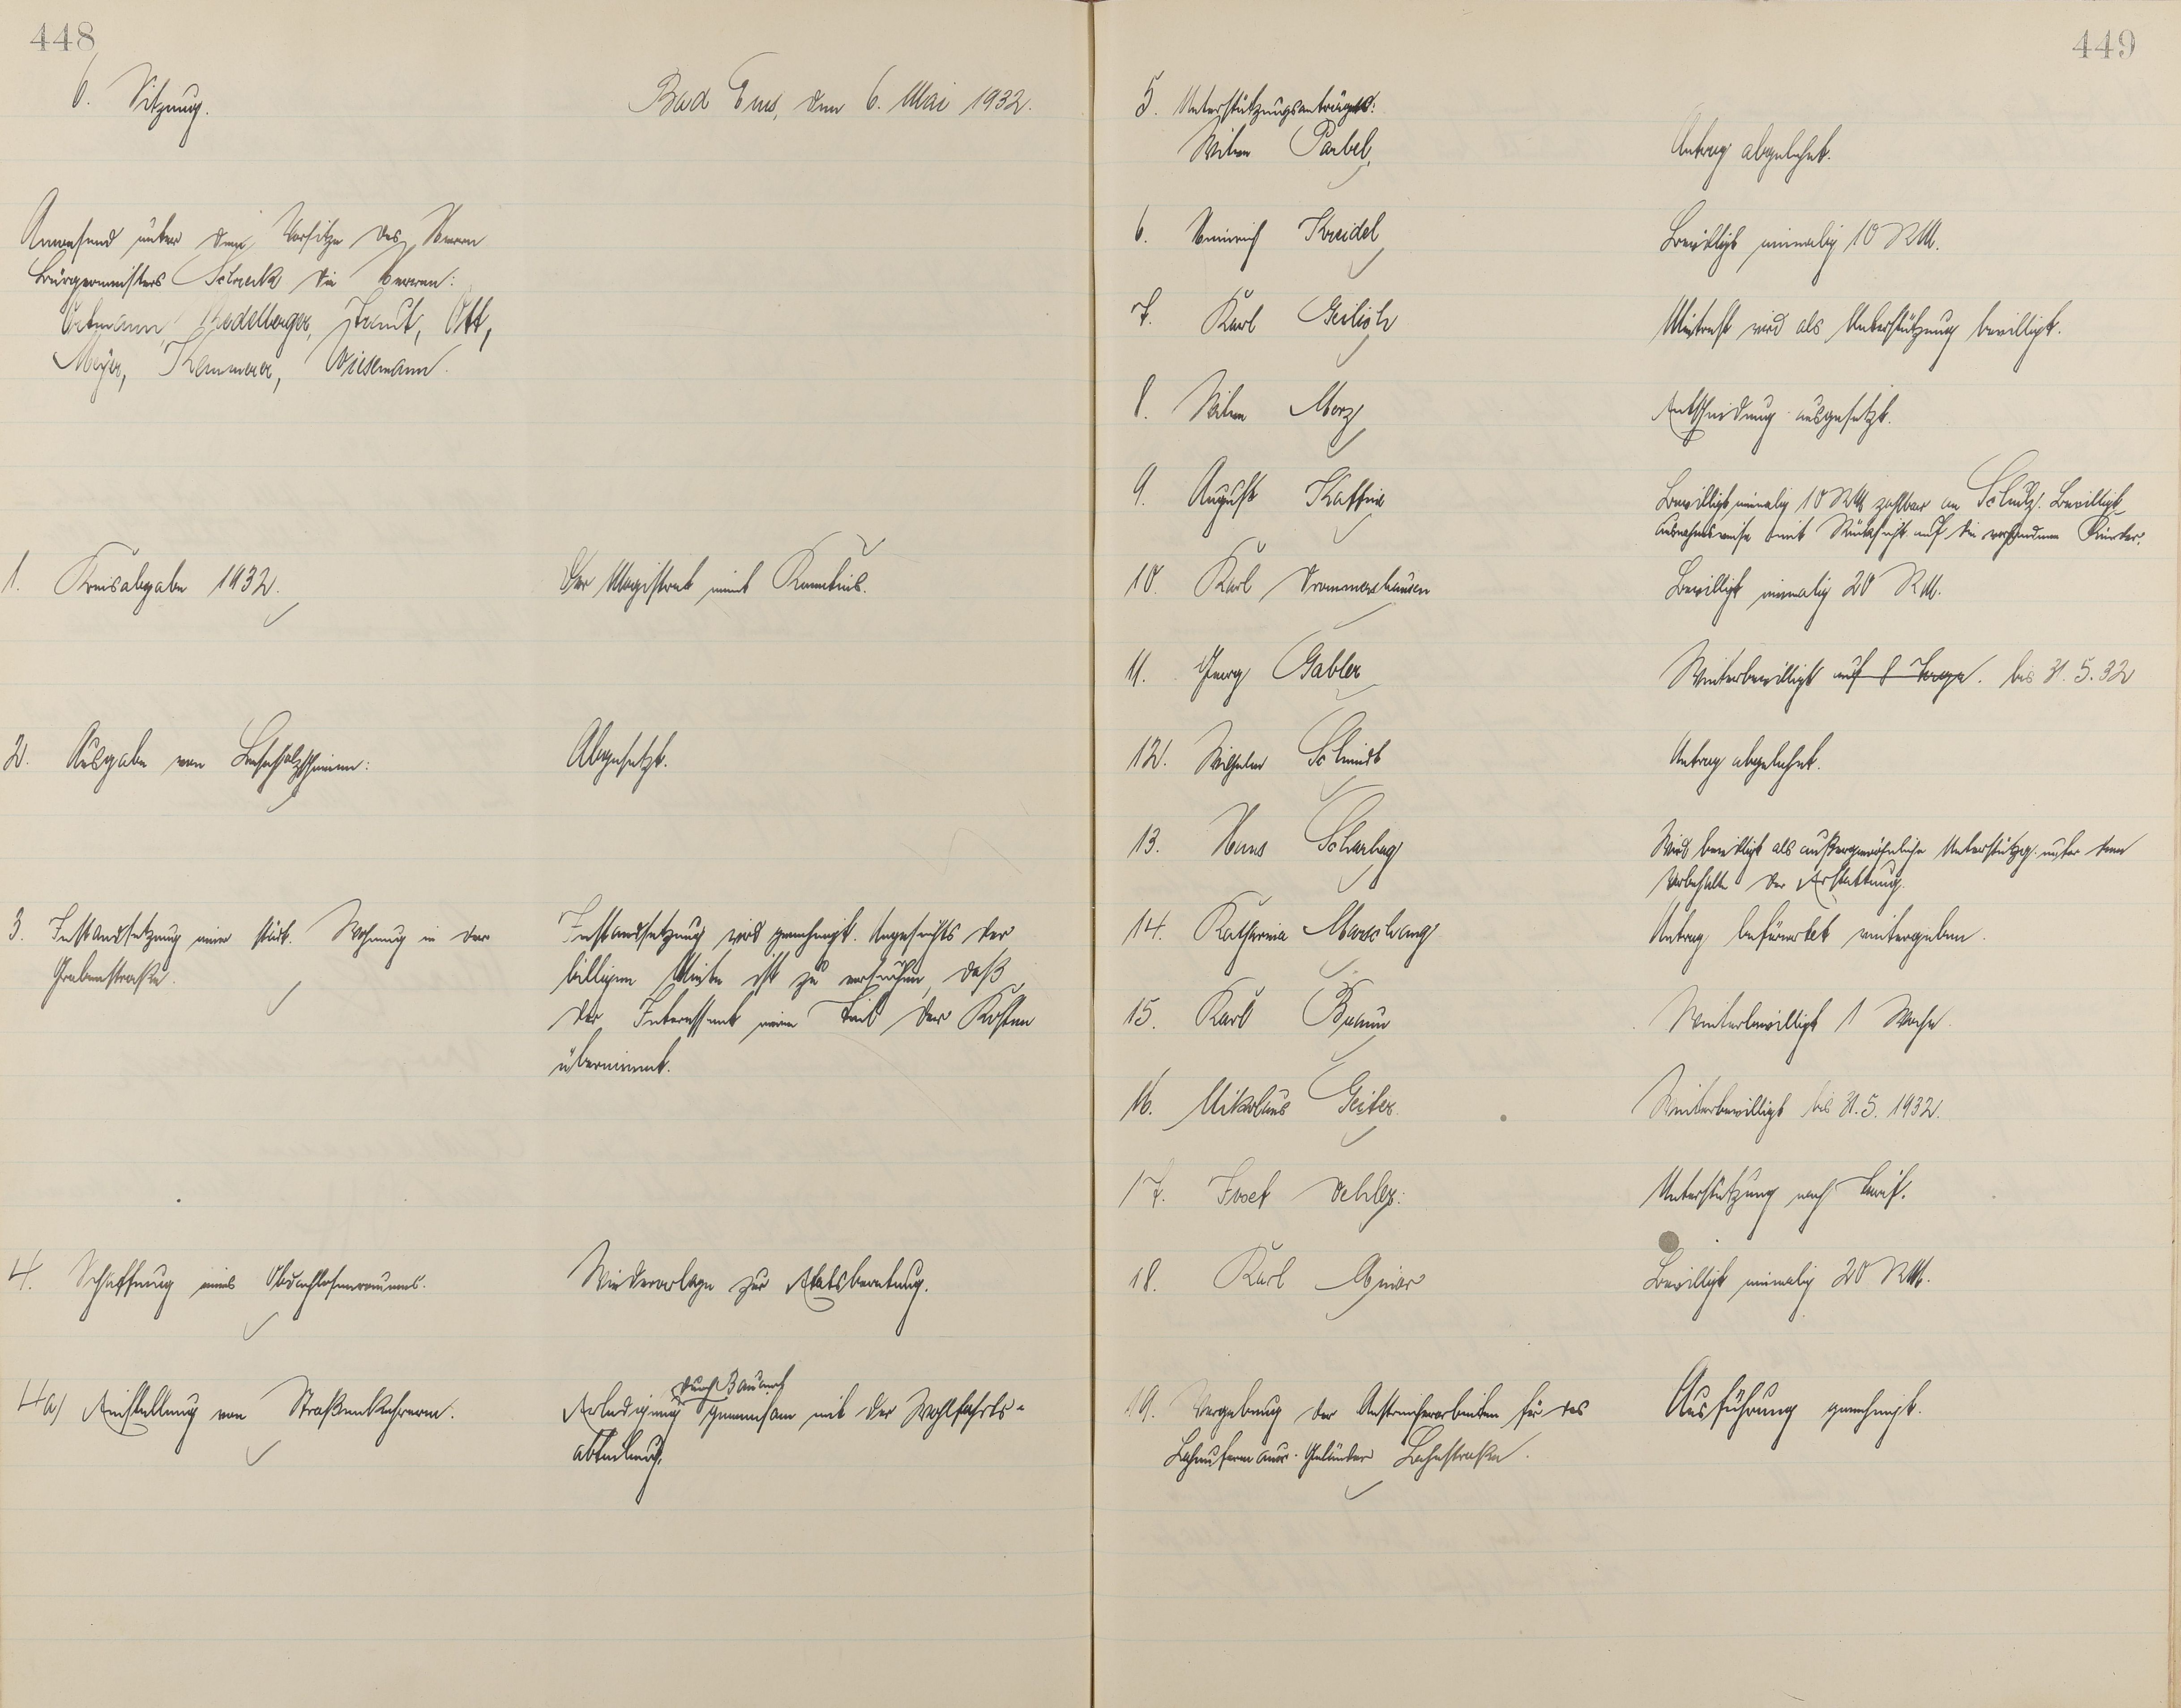 448
6. Sitzung.
Bad Ems, den 6. Mai 1932.
Anwesend unter dem Vorsitze des Herrn
Bürgermeisters Schreck die Herren:
Ortmann, Stadelberger, Traut, Ott,
Meyer, Kemmerer, Wiesemann.
1. Kreisabgabe 1932.
Der Magistrat nimt Kenntnis.
2. Ausgabe von Leseholzscheinen:
Abgesetzt.
3. Instandsetzung einer städt. Wohnung in der
Grabenstraße.
Instandsetzung wird genehmigt. Angesichts der
billigen Miete ist zu versuchen, daß
der Interessent einen Teil der Kosten
übernimmt.
4. Schaffung eines Obdachlosenraumes.
Wiedervorlage zur Etatsberatung.
4a) Einstellung von Straßenkehrern.
durch Bauamt
Erledigung gemeinsam mit der Wohlfahrts-
abteilung.
449
5. Unterstützungsanträge:
Witwe Parbel,
Antrag abgelehnt.
6. Heinrich Kreidel
Bewilligt einmalig 10 RM.
7. Karl Geilich
Mietrest wird als Unterstützung bewilligt.
8. Witwe Merz
Entscheidung ausgesetzt.
9. August Kaffine
Bewilligt einmalig 10 RM zahlbar an Schulz. Bewilligt
ausnahmsweise mit Rücksicht auf die vorhandenen Kinder.
10. Karl Drommershausen
Bewilligt einmalig 20 RM.
11. Georg Gabler
Weiterbewilligt auf 8 Tage. bis 31.5.32
12. Wilhelm Schmidt
Antrag abgelehnt.
13. Hans Scharhag
Wird bewilligt als außergewöhnliche Unterstützg. unter dem
Vorbehalte der Erstattung.
14. Katharina Marschang
Antrag befürwortet weitergeben.
15. Karl Braun
Weiterbewilligt 1 Woche.
16. Nikolaus Geiter
Weiterbewilligt bis 31.5.1932.
17. Josef Oehler:
Unterstützung nach Tarif.
18. Karl
Bewilligt einmalig 20 RM.
19. Vergebung der Anstreicherarbeiten für das
Lahnufermauer-Geländer Lahnstraße.
Ausführung genehmigt.